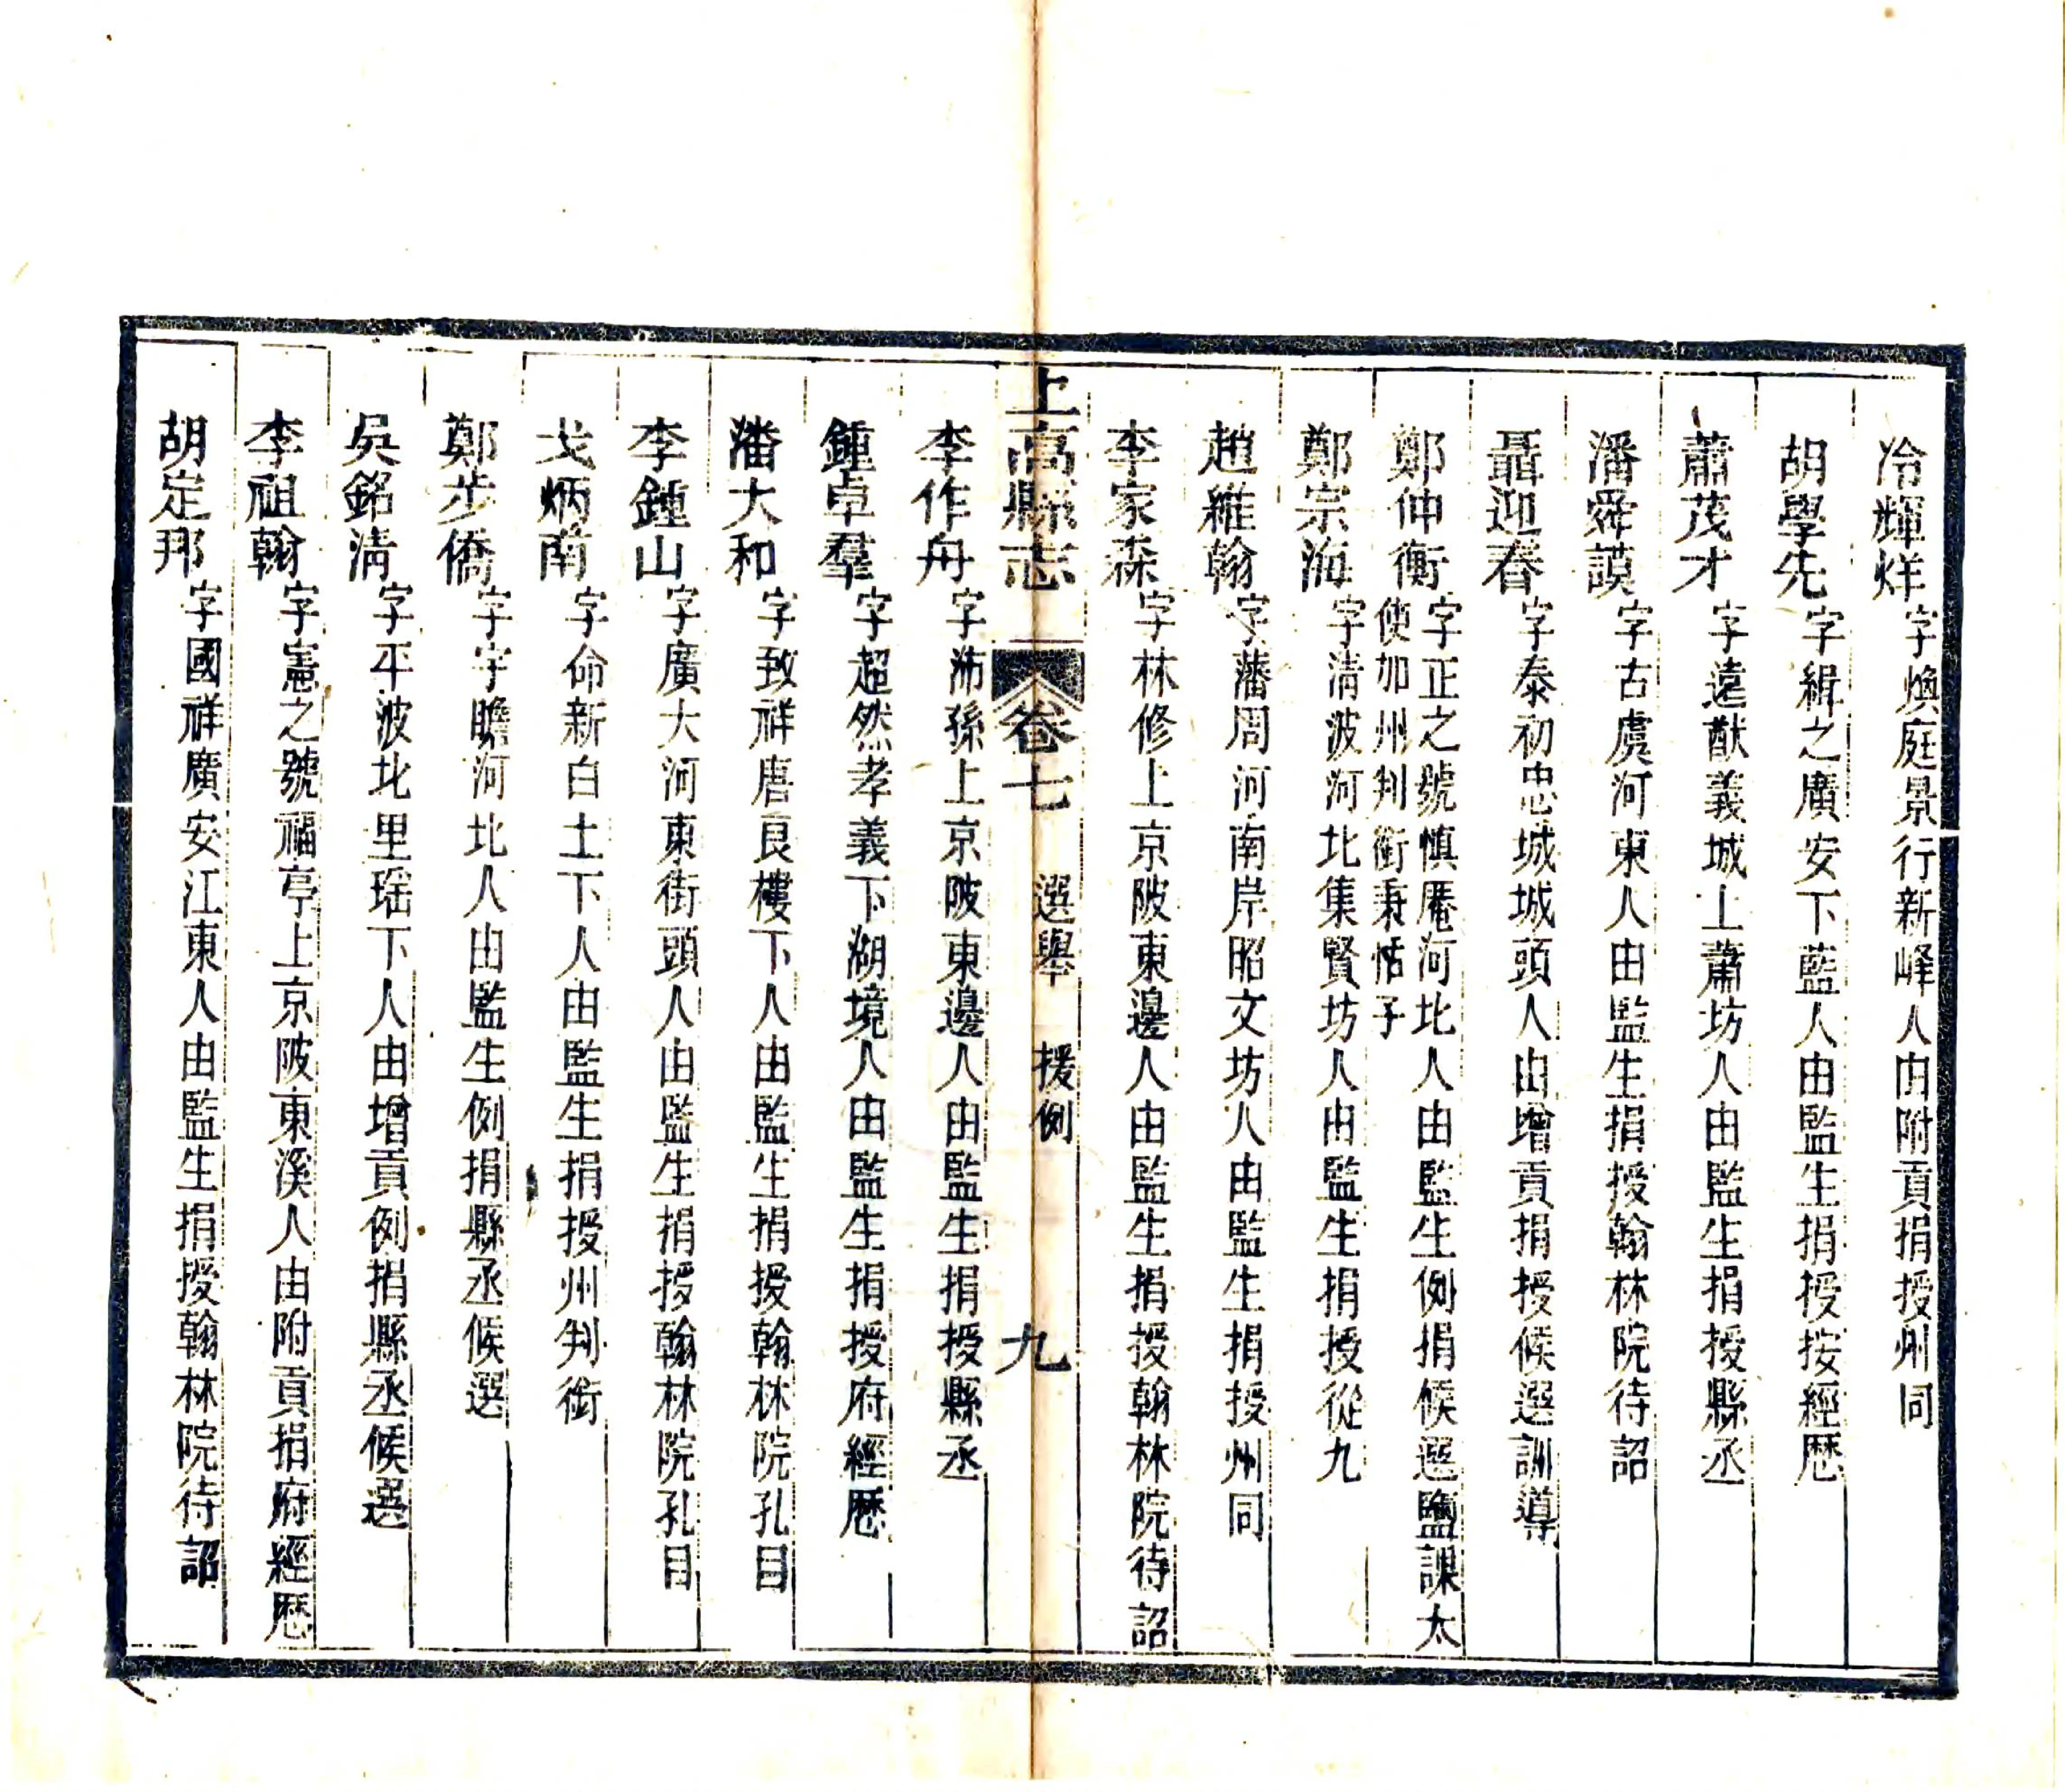 冷輝烊字煥庭景行新峰人由附貢捐授州同
胡學先字緝之廣安下藍人由監生捐授按經歷
蕭茂才字遠猷義城上蕭坊人由監生捐授縣丞
潘舜謨字古虞河東人由監生捐授翰林院待詔
聶迎春字泰初忠城城頭人由增貢捐授候選訓導
鄭仲衡字正之號慎庵河北人由監生例捐候選鹽課太
使加州判銜秉恬子
鄭宗海字清波河北集賢坊人由監生捐授從九
趙維翰字藩周河南岸昭文坊人由監生捐授州同
李家森字林修上京陂東邊人由監生捐授翰林院待詔
上高縣志 卷七 選舉 援例 九
李作舟字沛孫上京陂東邊人由監生捐授縣丞
鍾卓羣字超然孝義下湖境人由監生捐授府經歷
潘大和字致祥唐良樓下人由監生捐授翰林院孔目
李鍾山字廣大河東街頭人由監生捐授翰林院孔目
戈炳南字命新白土下人由監生捐授州判銜
鄭步僑字宇瞻河北人由監生例捐縣丞候選
吳銘清字平波北里瑶下人由增貢例捐縣丞候選
李祖翰字憲之號福亭上京陂東溪人由附貢捐府經歷
胡定邦字國祥廣安江東人由監生捐授翰林院待詔